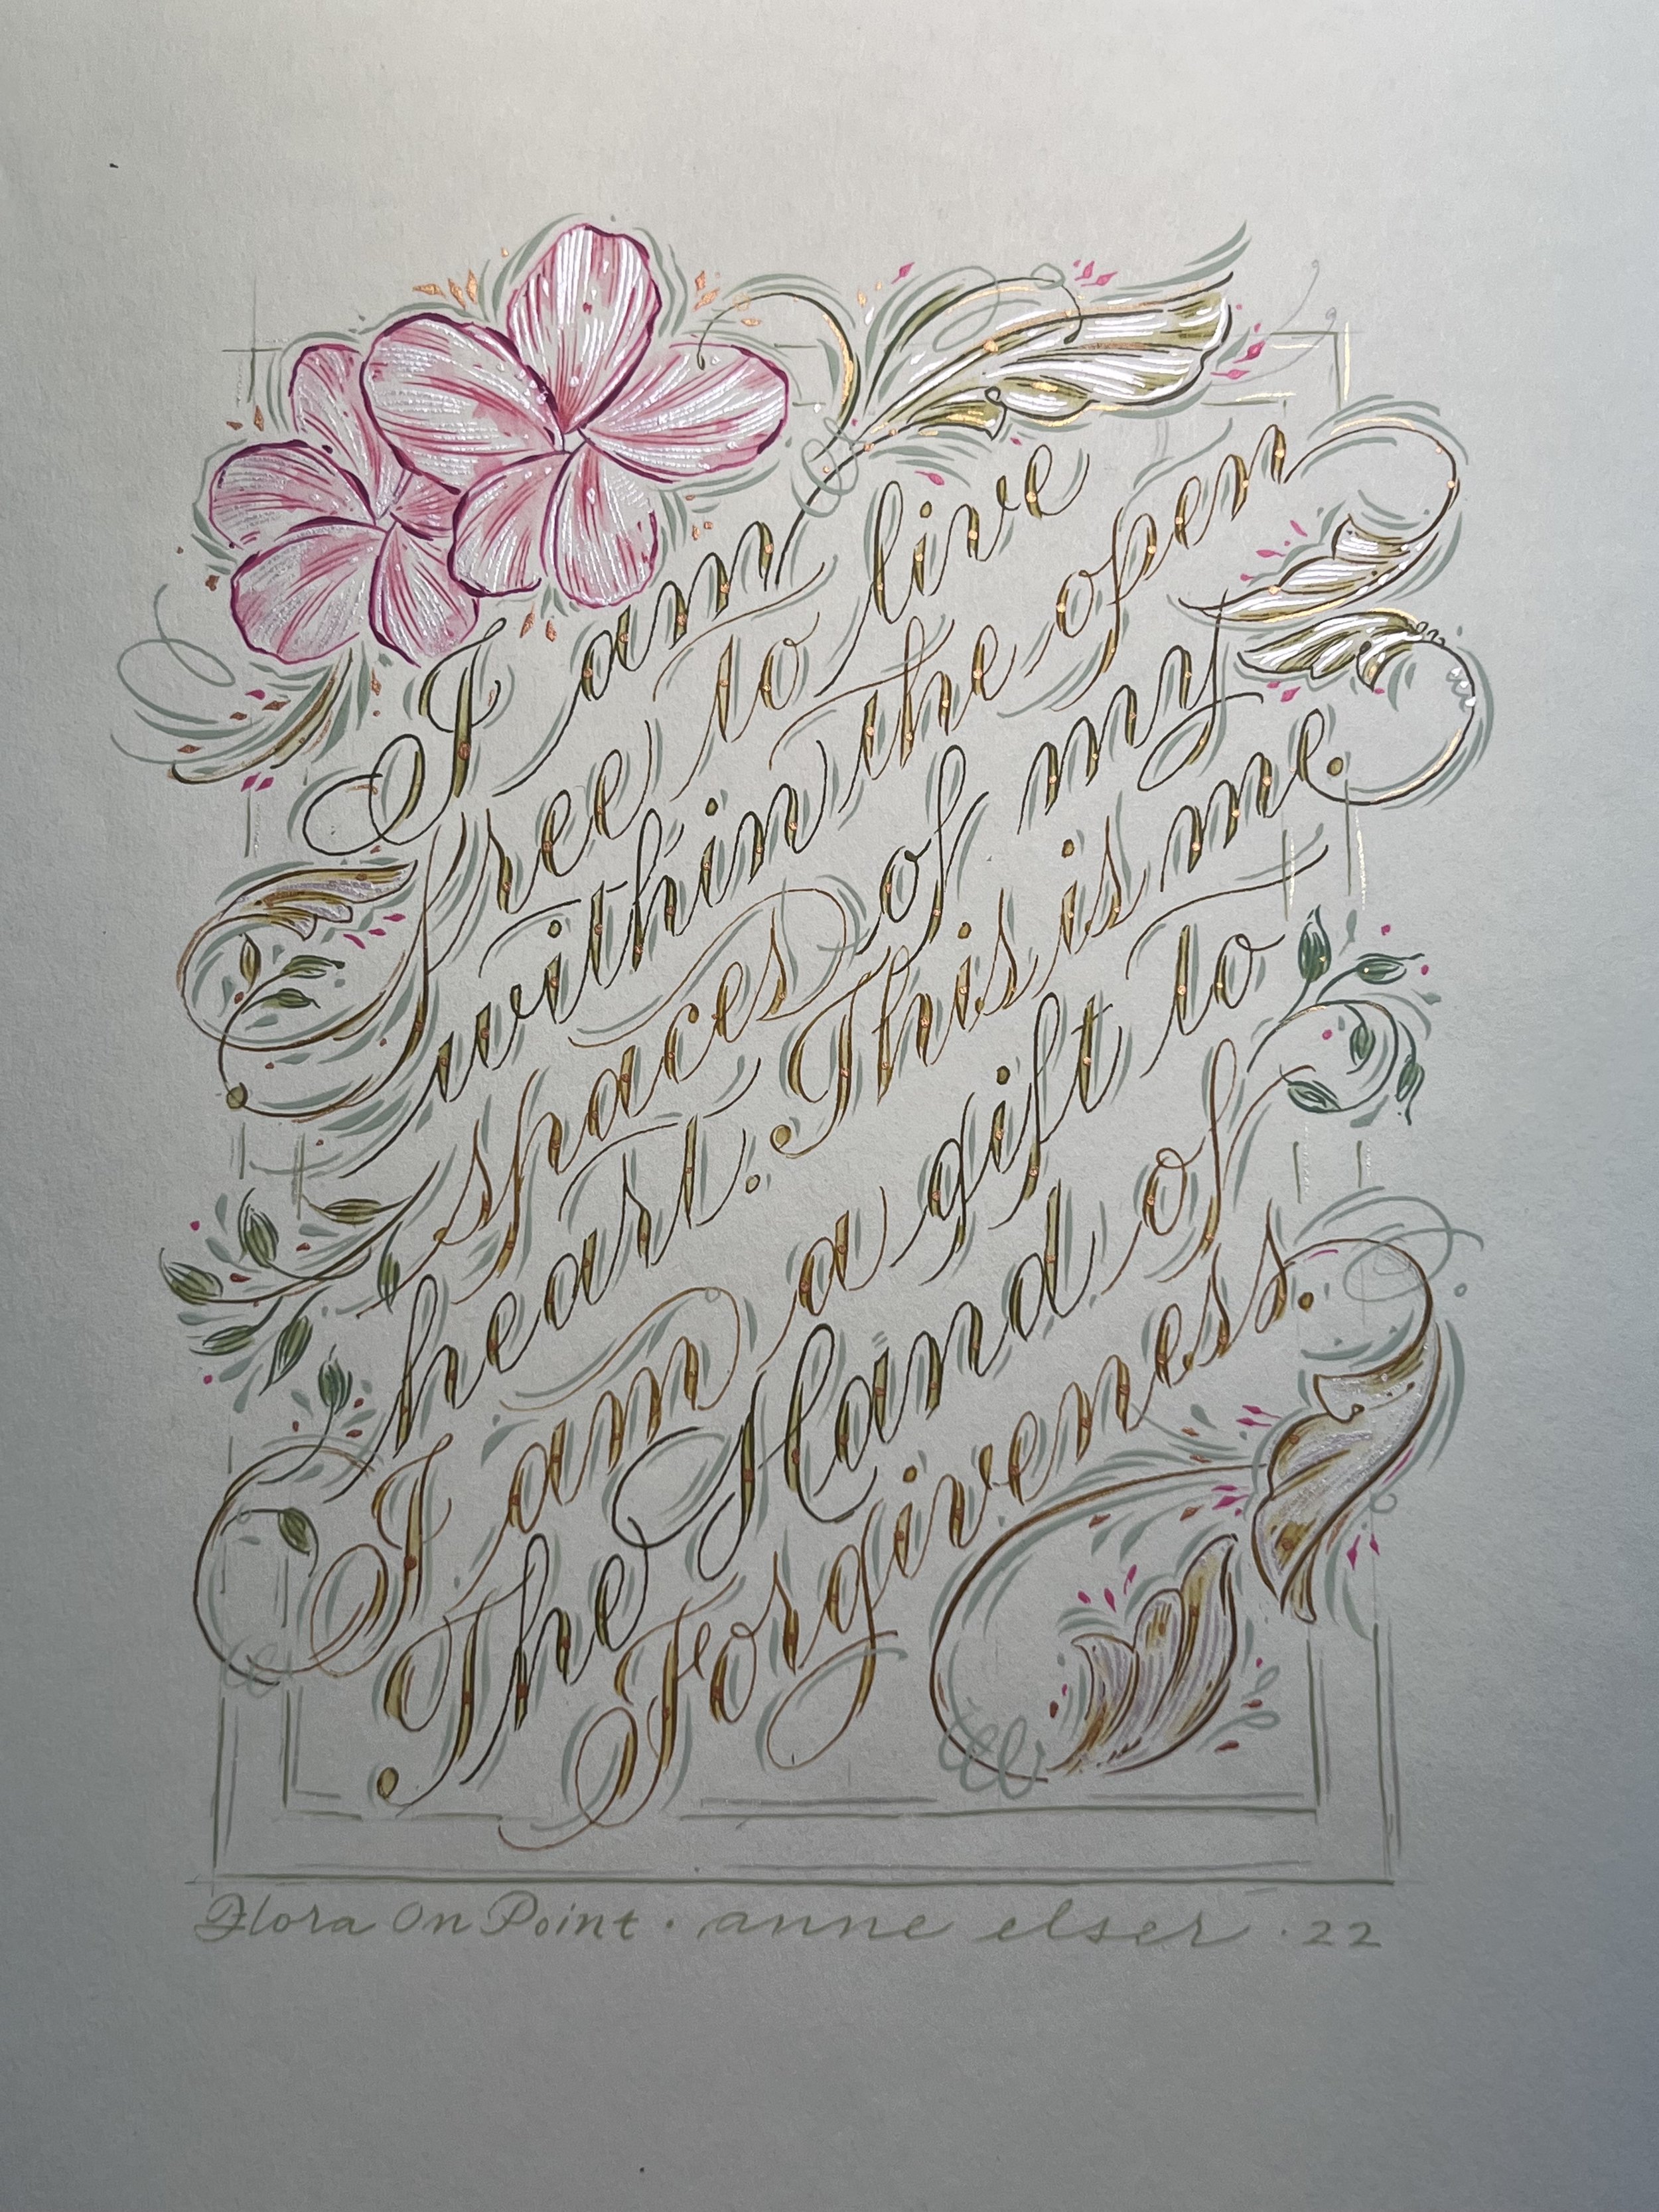 I am
free to live
within the open
spaces of my
heart. This is me.
I am a gift to
The Hand of
Forgiveness.
Flora On Point · anne elser · 22